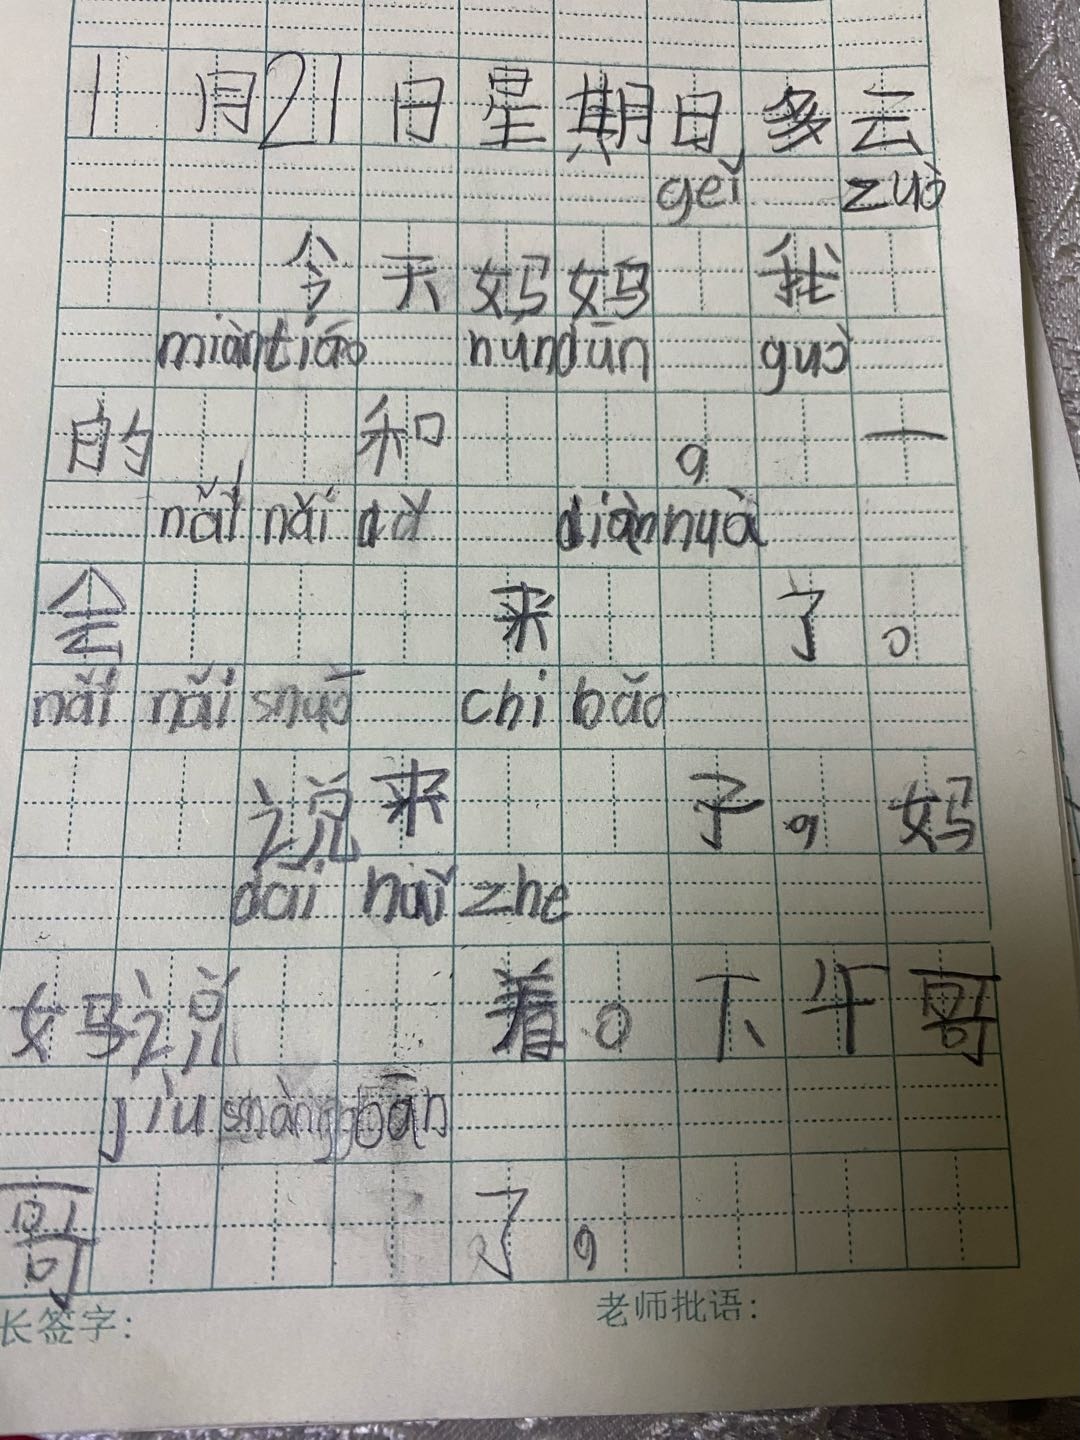 1月21日星期日多云
gěi zuò
今天妈妈 我
miàntiáo húndūn guò
的 和 , 一
nǎi nǎi dǎ diànhuà
会 来 了。
nǎi nǎi shuō chi bǎo
说来 子,妈
dāi hǎi zhe
妈说 着。下午哥
jiù shàngbān
哥 了,
长签字: 老师批语: